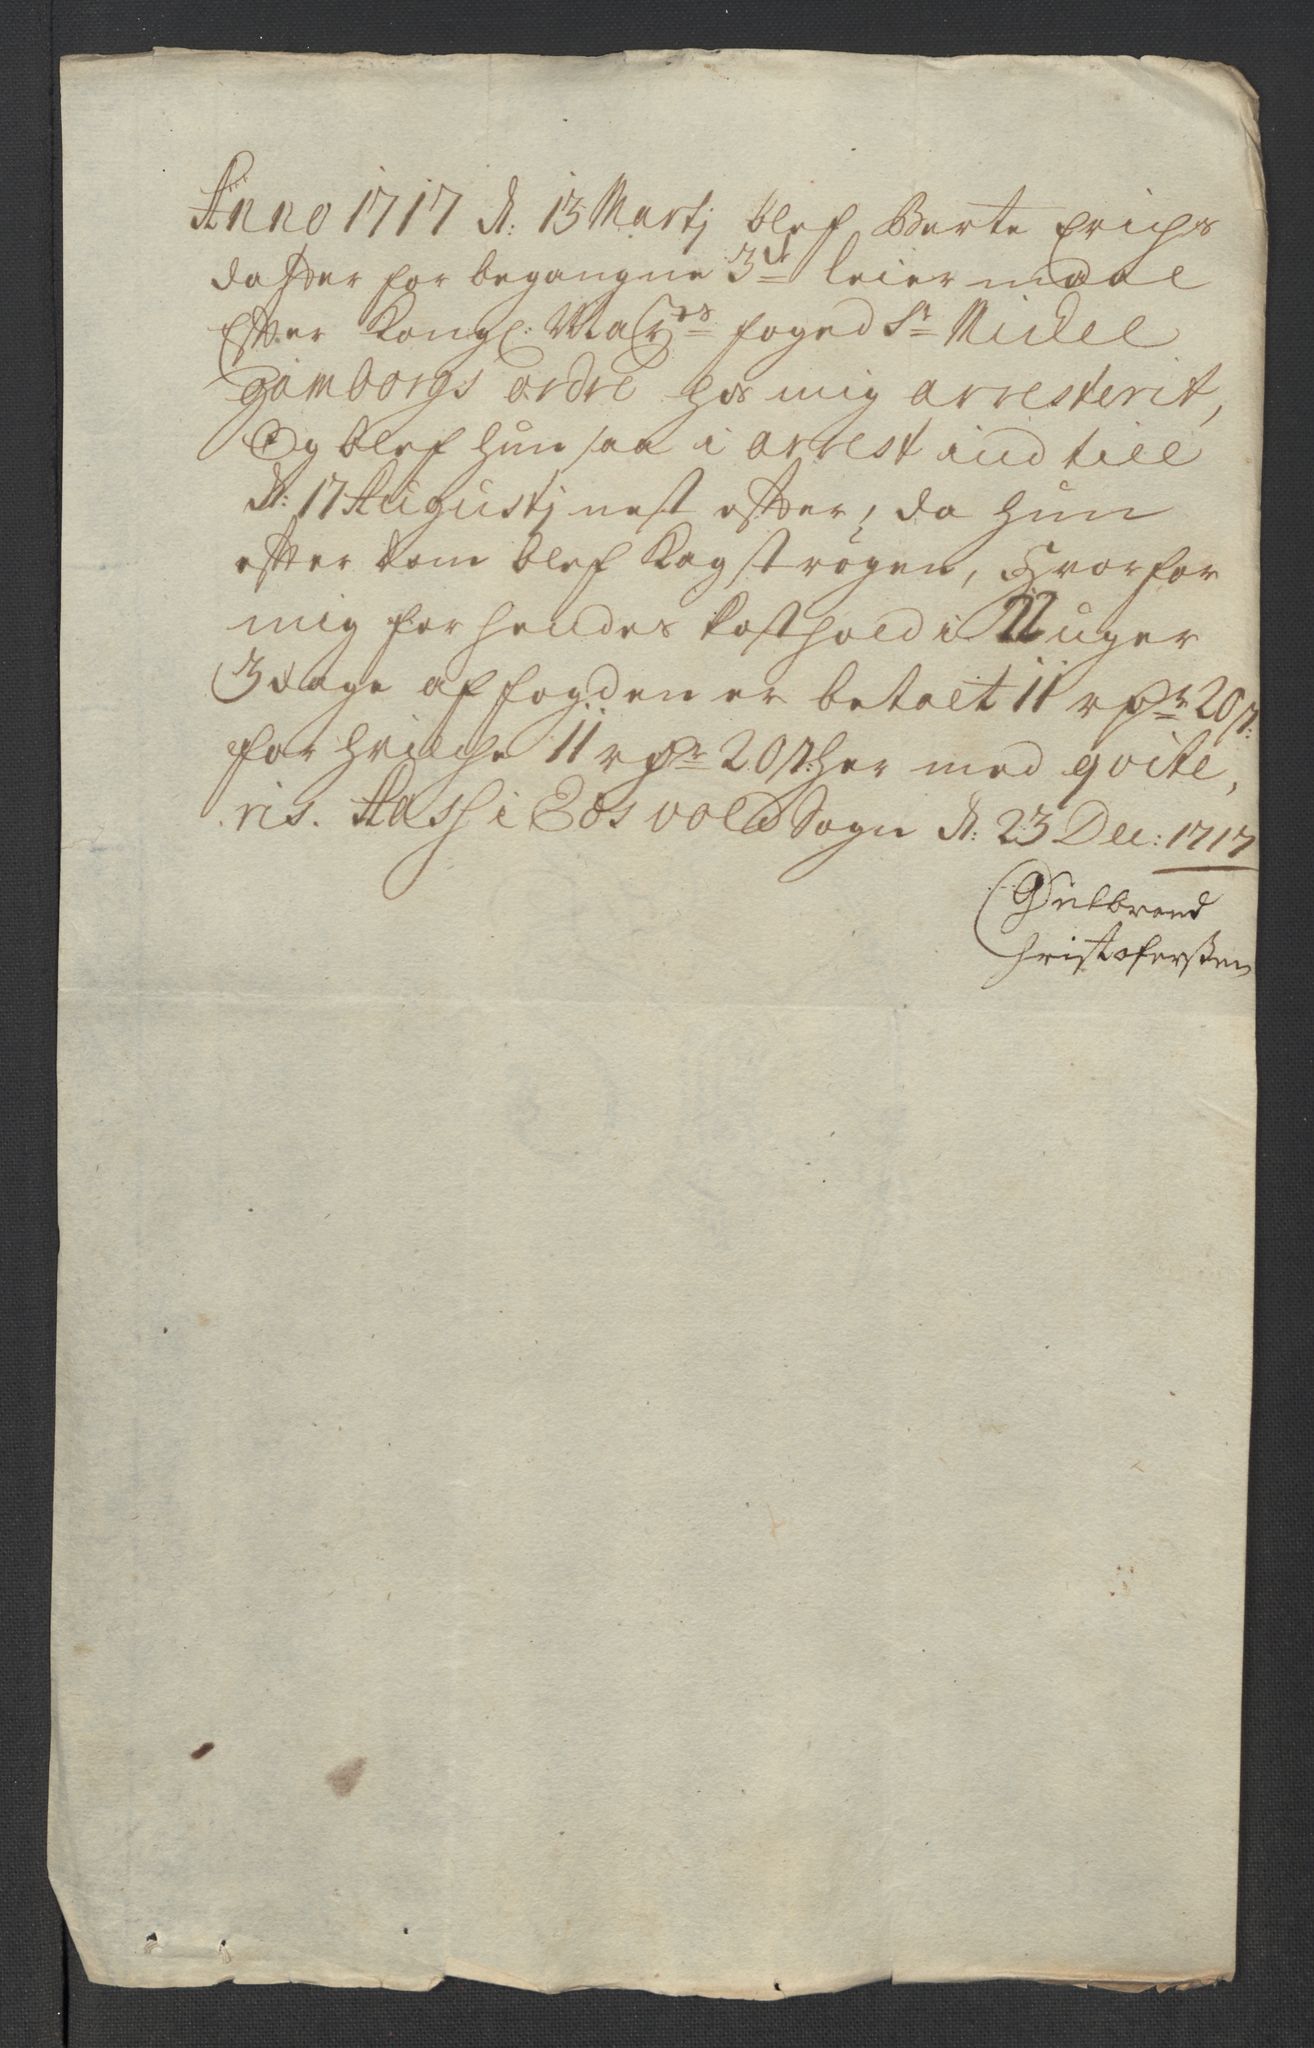 Anno 1717 d: 13 Martj blef Berte Erichs
datter for begangne 3de leiermaal
Efter Kongl: Mayts foged Sr Michel
Gamborgs ordre hos mig arresterit,
Og blef hun saa i arrest ind till
d: 17 Augustj nest efter, da hun
efter dom blef Kagstrøgen, Hvorfor
mig for hendes Kosthold i 22 uger
3 dage af fogden er betalt 11 rdr 20 s:
for hvilche 11 rdr 20 s: her med qvite,
ris. Aas i Edsvold Sogn d: 23 Dec: 1717
Gulbrand
Christofersen